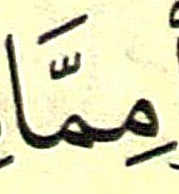 مِمَّا